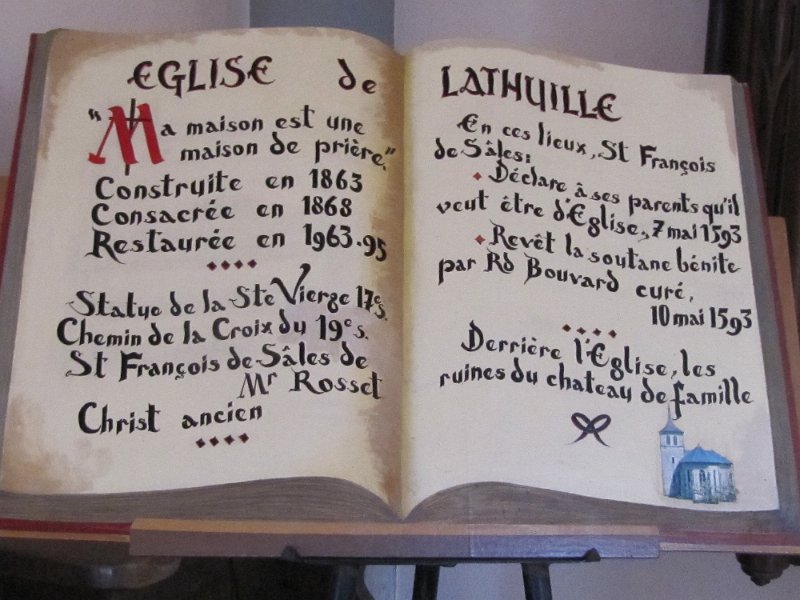 EGLISE de
"Ma maison est une
maison de prière."
Construite en 1863
Consacrée en 1868
Restaurée en 1963.95
Statue de la Ste Vierge 17e s.
Chemin de la Croix du 19e s.
St François de Sâles de
Mr Rosset
Christ ancien
LATHUILLE
En ces lieux, St François
de Sâles:
Déclare à ses parents qu'il
veut être d'Eglise, 7 mai 1593
Revêt la soutane bénite
par Rd Bouvard curé,
10 mai 1593
Derrière l'Eglise, les
ruines du chateau de famille